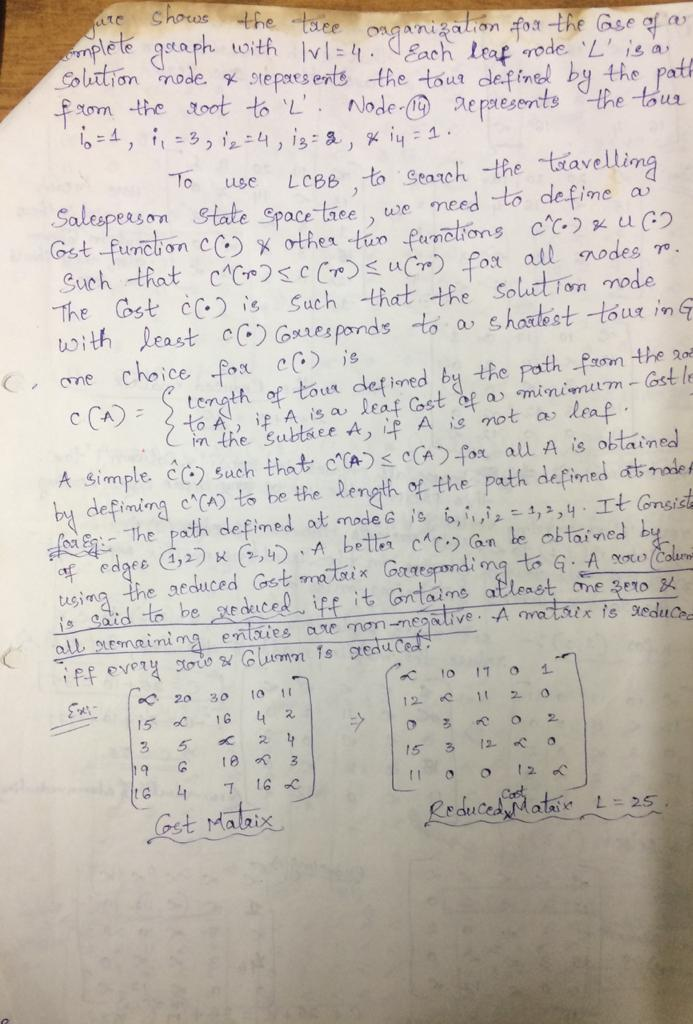 shows the tree organization for the Case of a
complete graph with |v|=4. Each leaf node 'L' is a
Solution node & represents the tour defined by the path
from the root to 'L'. Node-(14) represents the tour
i0=1, i1=3, i2=4, i3=2, & i4=1.
To use LCBB, to search the travelling
Salesperson State Space tree, we need to define a
Cost function C(.) & other two functions c^(.) & u(.)
Such that c^(r) ≤ c(r) ≤ u(r) for all nodes r.
The Cost c(.) is such that the solution node
with least c(.) Corresponds to a shortest tour in G
one choice for c(.) is
C(A) = { length of tour defined by the path from the
to A, if A is a leaf Cost of a minimum-Cost
in the subtree A, if A is not a leaf.
A simple ĉ(.) such that c^(A) ≤ c(A) for all A is obtained
by defining c^(A) to be the length of the path defined at node A
for Eg:- The path defined at node 6 is i0, i1, i2 = 1,2,4. It Consists
of edges (1,2) & (2,4). A better c^(.) Can be obtained by
using the reduced Cost matrix Corresponding to G. A row (Column
is said to be reduced iff it Contains atleast one zero &
all remaining entries are non-negative. A matrix is reduced
iff every row & Column is reduced.
Ex:-
∝ 20 30 10 11
15 ∝ 16 4 2
3 5 ∝ 2 4
19 6 18 ∝ 3
16 4 7 16 ∝
Cost Matrix
⇒
∝ 10 17 0 1
12 ∝ 11 2 0
0 3 ∝ 0 2
15 3 12 ∝ 0
11 0 0 12 ∝
Reduced Cost Matrix L = 25.